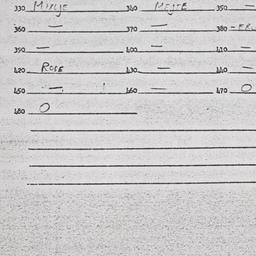 330 340 350 —
360 — 370 — 380
390 — 400 — 410 —
420 ROSE 430 — 440 —
450 — 460 — 470 O
480 O